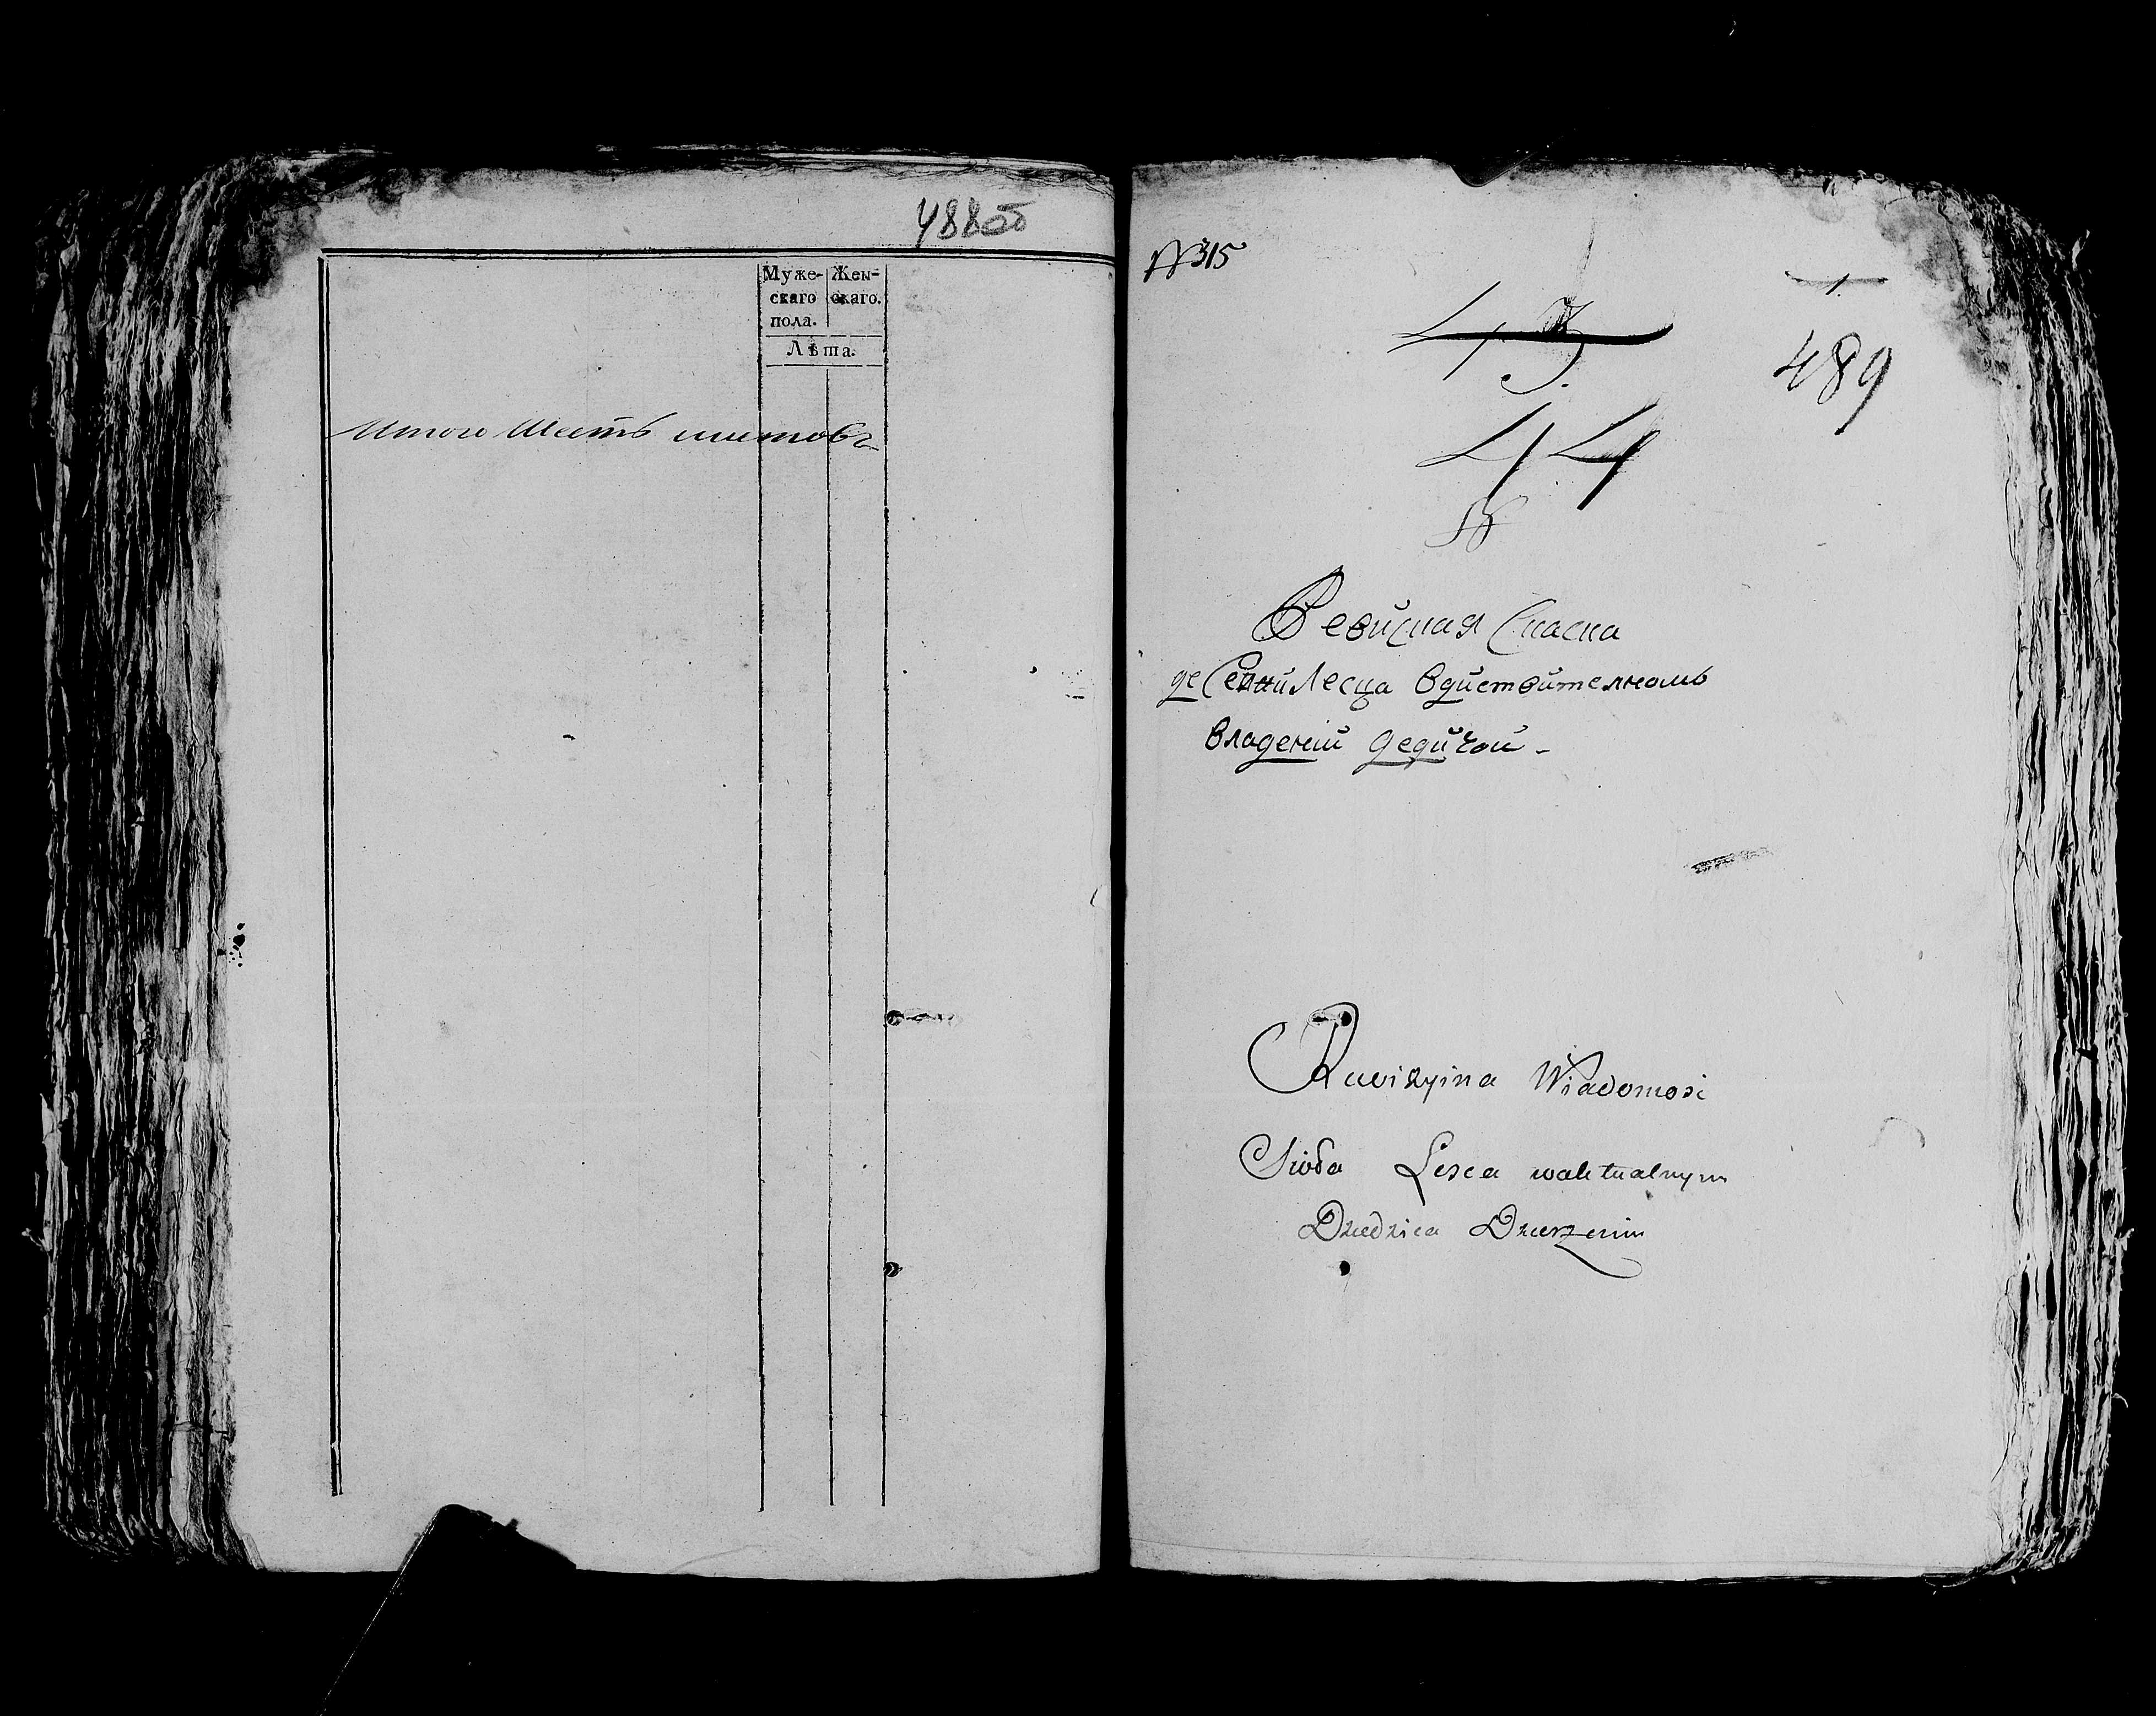 488об
Муже- Жен-
скаго скаго.
пола.
Лѣта.
Итого Шесть листовъ
№315
1
43.
489
44
Ревизкая Скаска
Лесца вдиствителномъ
владений дедичой -
Rewizyina Wiadomosc
Sioła Lesca waktualnym
Dziedzica Dzierzeniu